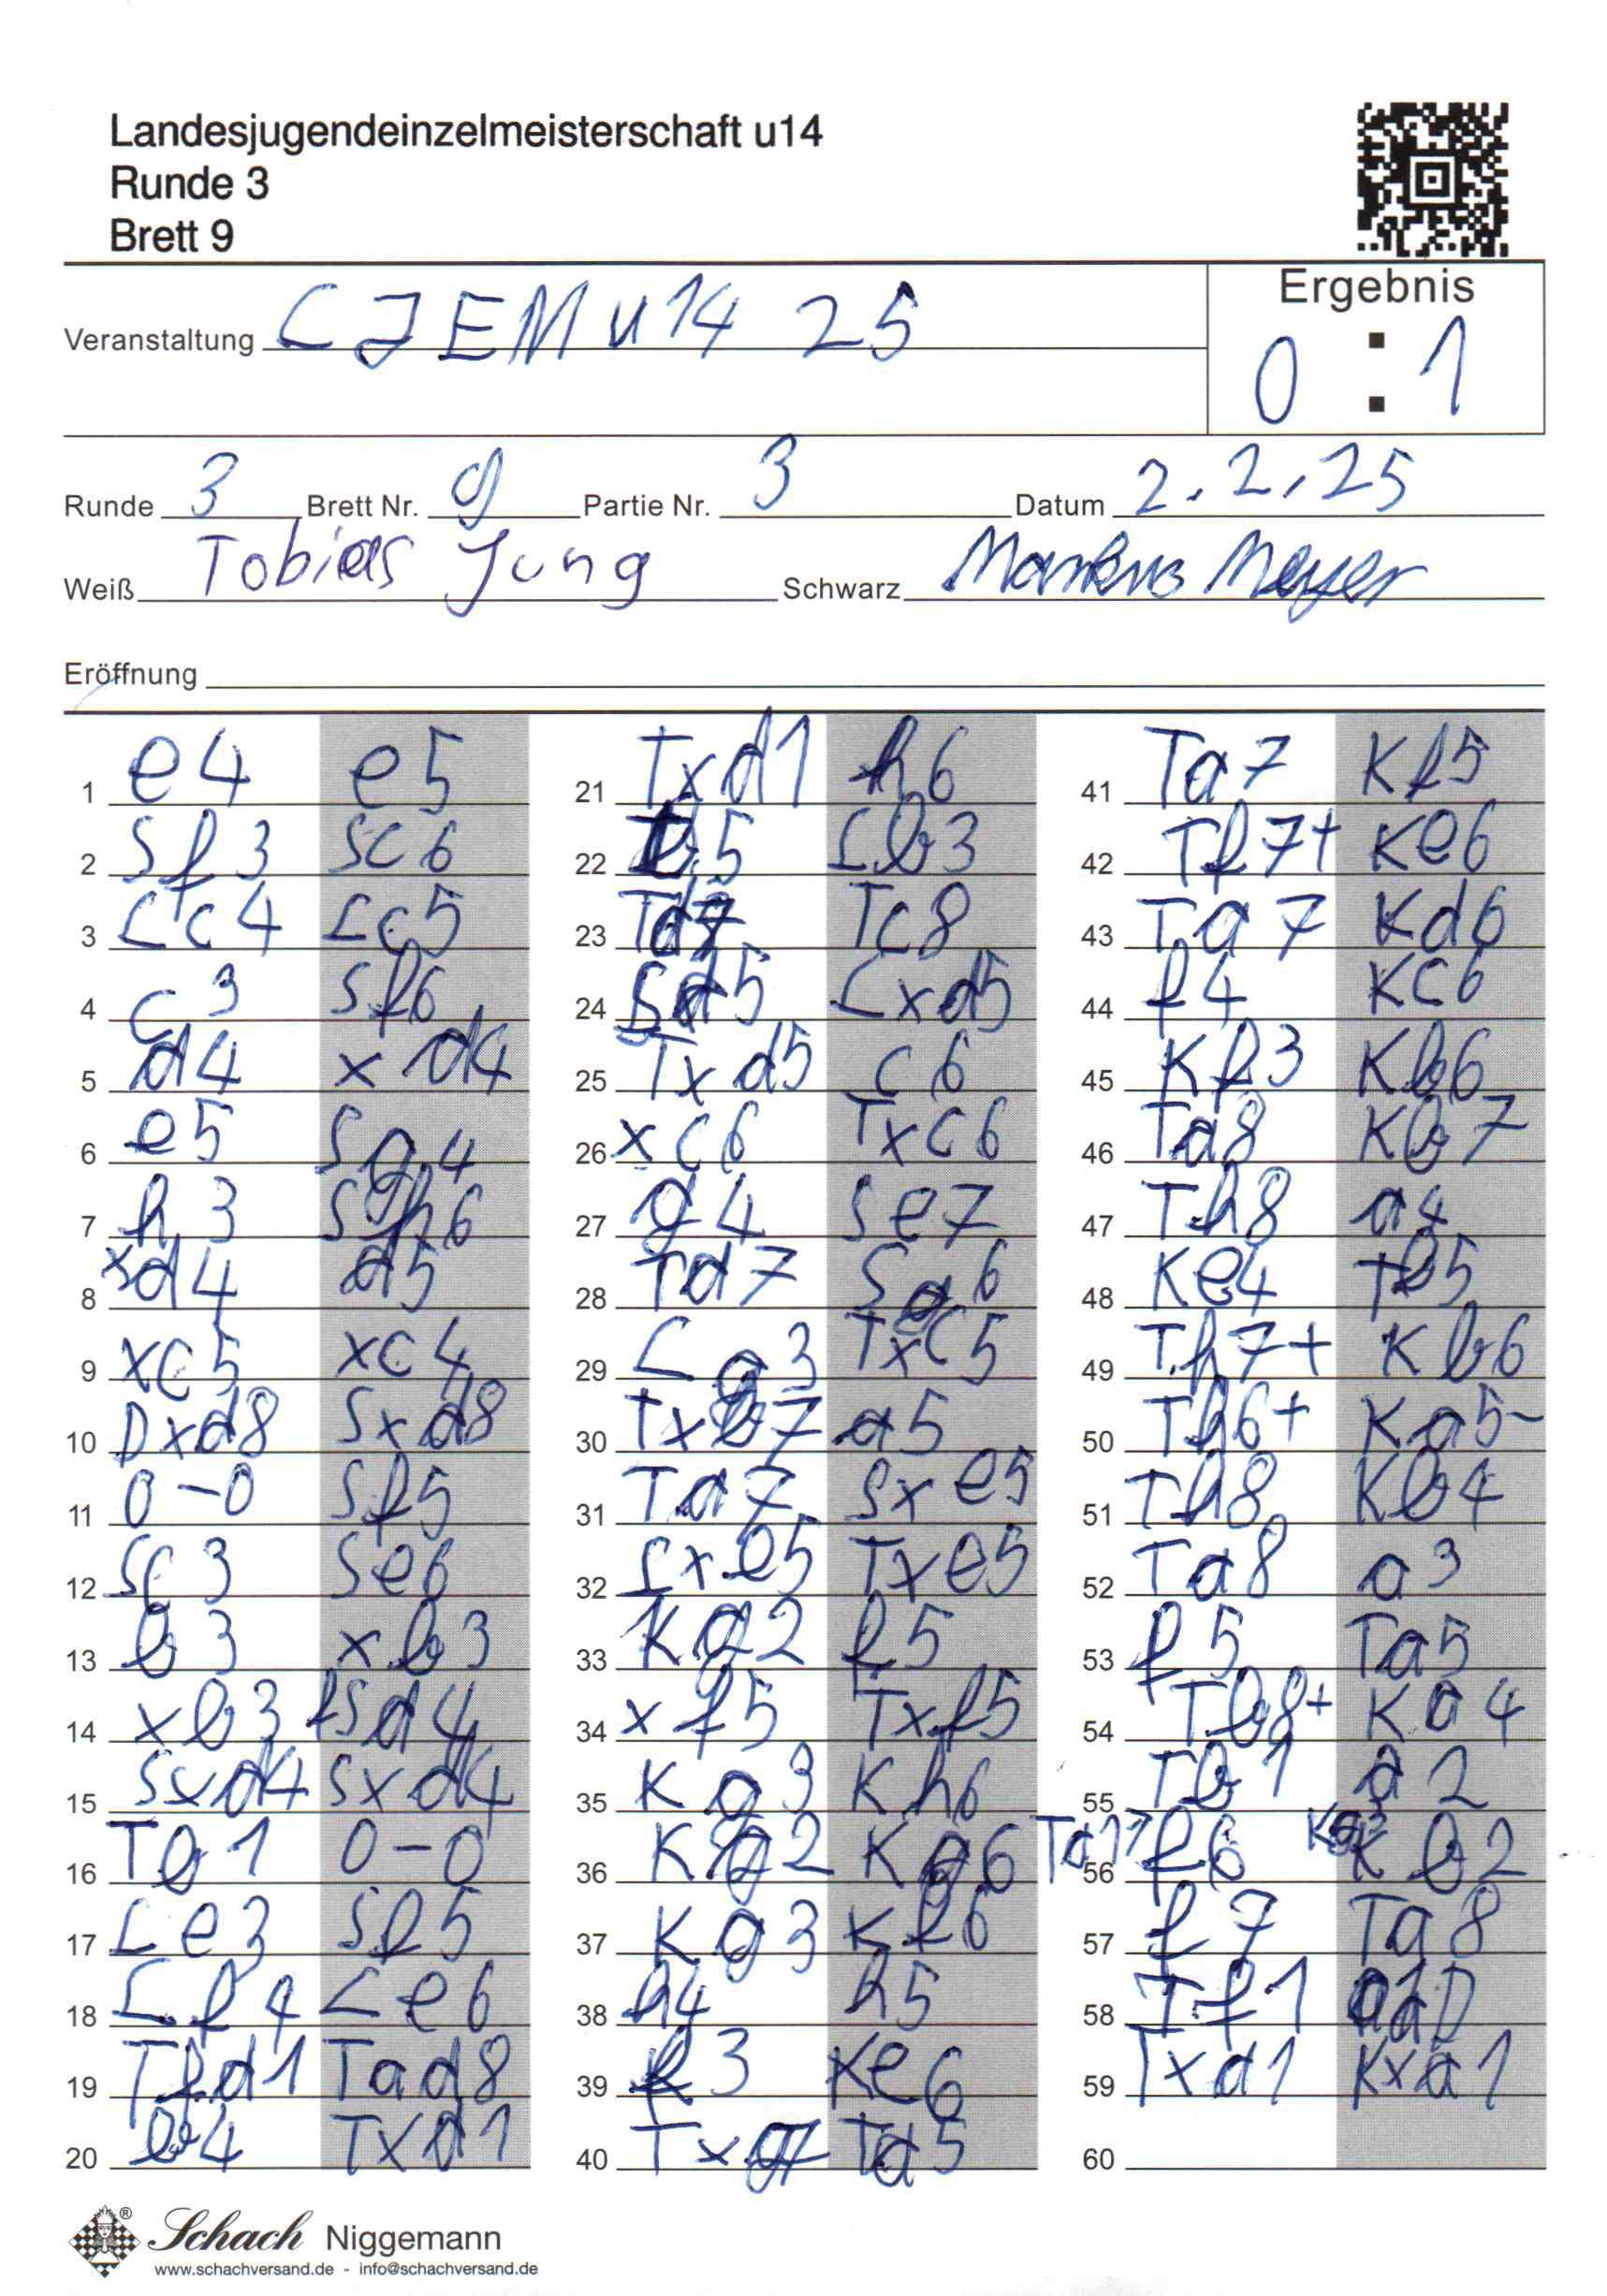 Landesjugendeinzelmeisterschaft u14
Runde 3
Brett 9
Ergebnis
Veranstaltung LJEM u14 25
0 : 1
Runde 3 Brett Nr. 9 Partie Nr. 3 Datum 2.2.25
Weiß Tobias Jung Schwarz Markus Meyer
Eröffnung
1 e4 e5
2 Sf3 Sc6
3 Lc4 Lc5
4 c3 Sf6
5 d4 xd4
6 e5 Sg4
7 h3 Sgh6
8 xd4 d5
9 xc5 xc4
10 Dxd8 Sxd8
11 0-0 Sf5
12 Sc3 Se6
13 b3 xb3
14 xb3 fSd4
15 Sxd4 Sxd4
16 Tb1 0-0
17 Le3 Sf5
18 Lf4 Le6
19 Tfd1 Tad8
20 b4 Txd1
21 Txd1 h6
22 b5 Lb3
23 Td7 Tc8
24 Sd5 Lxd5
25 Txd5 c6
26 xc6 Txc6
27 g4 Se7
28 Td7 Sg6
29 Lg3 Txc5
30 Txb7 a5
31 Ta7 Sxe5
32 Lxe5 Txe5
33 Kg2 f5
34 xf5 Txf5
35 Kg3 Kh6
36 Kg2 Kg6
37 Kg3 Kf6
38 h4 h5
39 f3 Ke6
40 Txg7 Ta5
41 Ta7 Kf5
42 Tf7+ Ke6
43 Ta7 Kd6
44 f4 Kc6
45 Kf3 Kb6
46 Ta8 Kb7
47 Th8 a4
48 Ke4 Tb5
49 Th7+ Kb6
50 Th6+ Ka5
51 Th8 Kb4
52 Ta8 a3
53 f5 Ta5
54 Tb8+ Ka4
55 Tb1 a2
56 Ta1 f6 Kb3 Kb2
57 f7 Ta8
58 Tf1 a1D
59 Txa1 Kxa1
60
Schach Niggemann ®
www.schachversand.de - info@schachversand.de